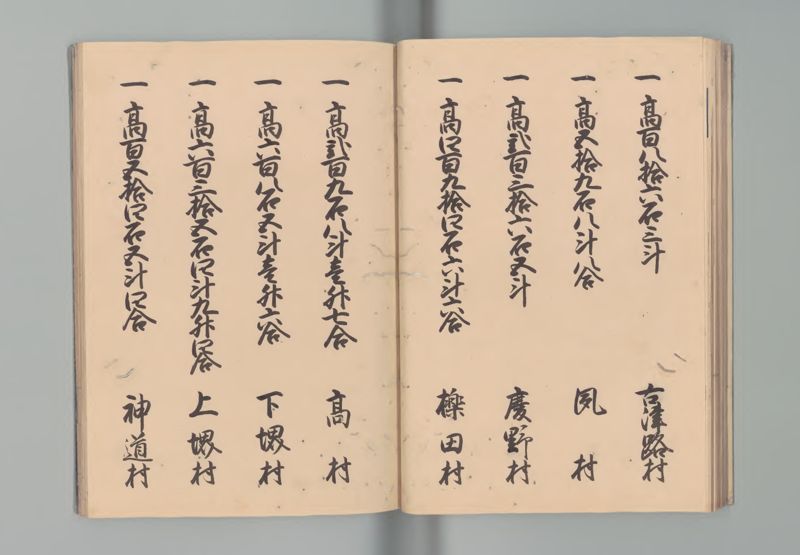 一 高百八拾六石三斗 古津路村
一 高五拾九石八斗八合 夙村
一 高弐百三拾六石五斗 慶野村
一 高四百九拾四石六斗六合 櫟田村
一 高弐百九石八斗壱升七合 高村
一 高六百八石五斗壱升六合 下堺村
一 高六百三拾五石四斗九升四合 上堺村
一 高百五拾四石五斗四合 神道村